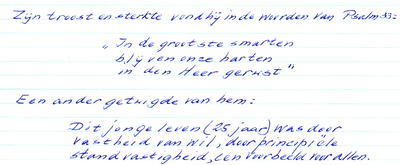 Zijn troost en sterkte vond hij in de woorden van Psalm 33:
„In de grootste smarten
blijven onze harten
in den Heer gerust"
Een ander getuigde van hem:
Dit jonge leven (25 jaar) was door
vastheid van wil, door principiële
standvastigheid, een voorbeeld voor allen.